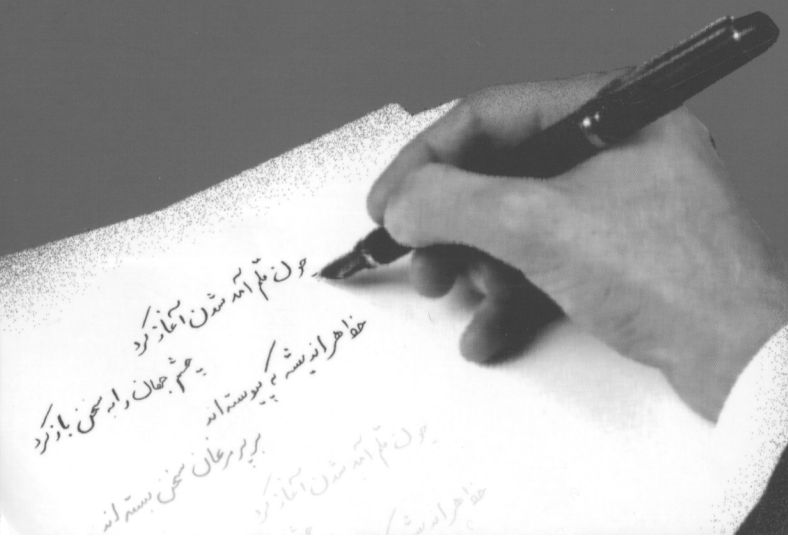 چون قلم آمد شدن آغاز کرد
چشم جهان را به سخن باز کرد
خط هر اندیشه که پیوسته اند
بر پر مرغان سخن بسته اند
چون قلم آمد شدن آغاز کرد
چشم
خط هر اندیشه